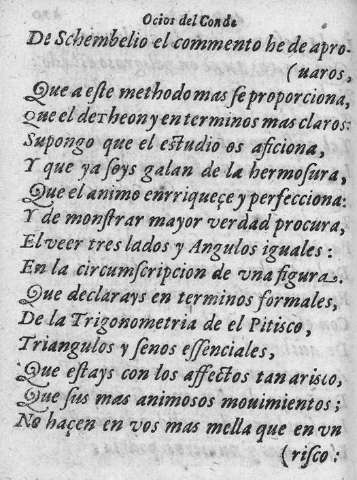 Ocios del Conde
De Schembelio el commento he de apro-
(uaros,
Que a este methodo mas se proporciona,
Que el de Theon y en terminos mas claros:
Supongo que el estudio os aficiona,
Y que ya soys galan de la hermosura,
Que el animo enrriqueçe y perfecciona:
Y de monstrar mayor verdad procura,
El veer tres lados y Angulos iguales:
En la circumscripcion de vna figura.
Que declarays en terminos formales,
De la Trigonometria de el Pitisco,
Triangulos y senos essenciales,
Que estays con los affectos tan arisco,
Que sus mas animosos mouimientos;
No haçen en vos mas mella que en vn
(risco: